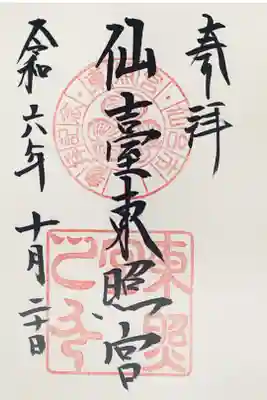 奉拝
仙臺東照宮
令和六年 十月二十日